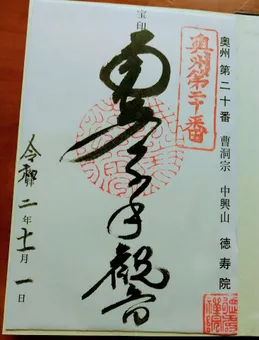 奥州 第二十番 曹洞宗 中興山 徳寿院
奥州第二十番
宝印
千手觀音
令和二年十一月一日